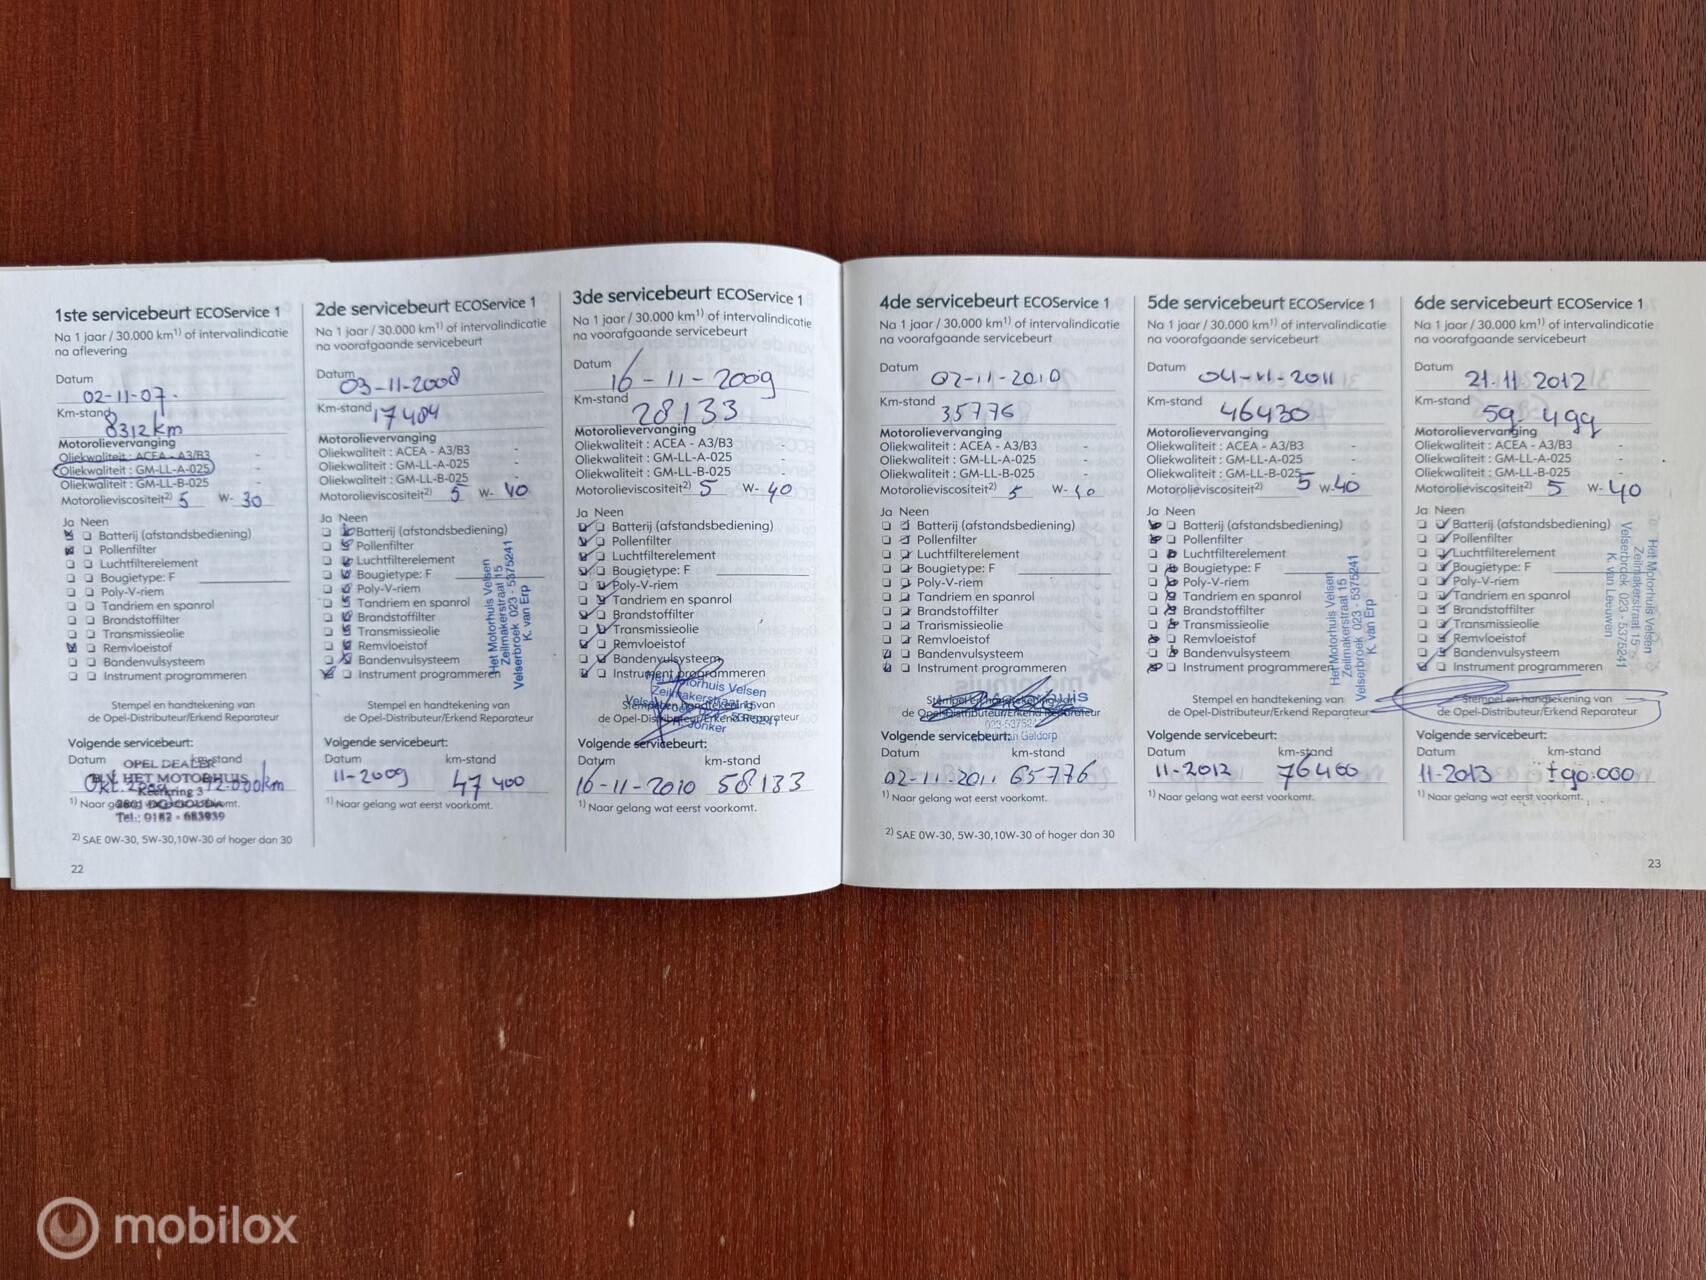 1ste servicebeurt ECOService 1
Na 1 jaar / 30.000 km1) of intervalindicatie
na aflevering
Datum
02-11-07.
Km-stand
8312 km
Motorolievervanging
Oliekwaliteit : ACEA - A3/B3 -
Oliekwaliteit : GM-LL-A-025 -
Oliekwaliteit : GM-LL-B-025
Motorolieviscositeit2) 5 W- 30
Ja Neen
Batterij (afstandsbediening)
Pollenfilter
Luchtfilterelement
Bougietype: F
Poly-V-riem
Tandriem en spanrol
Brandstoffilter
Transmissieolie
Remvloeistof
Bandenvulsysteem
Instrument programmeren
Stempel en handtekening van
de Opel-Distributeur/Erkend Reparateur
Volgende servicebeurt:
Datum km-stand
OPEL DEALER
B.V. HET MOTORHUIS
Tel.: 0182 - 683939
2) SAE 0W-30, 5W-30,10W-30 of hoger dan 30
22
2de servicebeurt ECOService 1
Na 1 jaar / 30.000 km1) of intervalindicatie
na voorafgaande servicebeurt
Datum
03-11-2008
Km-stand
17484
Motorolievervanging
Oliekwaliteit : ACEA - A3/B3 -
Oliekwaliteit : GM-LL-A-025 -
Oliekwaliteit : GM-LL-B-025 -
Motorolieviscositeit2) 5 W- 40
Ja Neen
Batterij (afstandsbediening)
Pollenfilter
Luchtfilterelement
Bougietype: F
Poly-V-riem
Tandriem en spanrol
Brandstoffilter
Transmissieolie
Remvloeistof
Bandenvulsysteem
Instrument programmeren
Het Motorhuis Velsen
Zeilmakerstraat 15
Velserbroek 023 - 5375241
K. van Erp
Stempel en handtekening van
de Opel-Distributeur/Erkend Reparateur
Volgende servicebeurt:
Datum km-stand
11-2009 47400
1) Naar gelang wat eerst voorkomt.
3de servicebeurt ECOService 1
Na 1 jaar / 30.000 km1) of intervalindicatie
na voorafgaande servicebeurt
Datum
16-11-2009
Km-stand
28133
Motorolievervanging
Oliekwaliteit : ACEA - A3/B3 -
Oliekwaliteit : GM-LL-A-025 -
Oliekwaliteit : GM-LL-B-025 -
Motorolieviscositeit2) 5 W- 40
Ja Neen
Batterij (afstandsbediening)
Pollenfilter
Luchtfilterelement
Bougietype: F
Poly-V-riem
Tandriem en spanrol
Brandstoffilter
Transmissieolie
Remvloeistof
Bandenvulsysteem
Instrument programmeren
Het Motorhuis Velsen
Zeilmakerstraat 15
Stempel en handtekening van
de Opel-Distributeur/Erkend Reparateur
Jonker
Volgende servicebeurt:
Datum km-stand
16-11-2010 58133
1) Naar gelang wat eerst voorkomt.
4de servicebeurt ECOService 1
Na 1 jaar / 30.000 km1) of intervalindicatie
na voorafgaande servicebeurt
Datum
02-11-2010
Km-stand
35776
Motorolievervanging
Oliekwaliteit : ACEA - A3/B3 -
Oliekwaliteit : GM-LL-A-025 -
Oliekwaliteit : GM-LL-B-025 -
Motorolieviscositeit2) 5 W- 40
Ja Neen
Batterij (afstandsbediening)
Pollenfilter
Luchtfilterelement
Bougietype: F
Poly-V-riem
Tandriem en spanrol
Brandstoffilter
Transmissieolie
Remvloeistof
Bandenvulsysteem
Instrument programmeren
Stempel en handtekening van
de Opel-Distributeur/Erkend Reparateur
van Geldorp
Volgende servicebeurt:
Datum km-stand
02-11-2011 65776
1) Naar gelang wat eerst voorkomt.
2) SAE 0W-30, 5W-30,10W-30 of hoger dan 30
5de servicebeurt ECOService 1
Na 1 jaar / 30.000 km1) of intervalindicatie
na voorafgaande servicebeurt
Datum
04-11-2011
Km-stand
46430
Motorolievervanging
Oliekwaliteit : ACEA - A3/B3 -
Oliekwaliteit : GM-LL-A-025 -
Oliekwaliteit : GM-LL-B-025 -
Motorolieviscositeit2) 5 W-40
Ja Neen
Batterij (afstandsbediening)
Pollenfilter
Luchtfilterelement
Bougietype: F
Poly-V-riem
Tandriem en spanrol
Brandstoffilter
Transmissieolie
Remvloeistof
Bandenvulsysteem
Instrument programmeren
Het Motorhuis Velsen
Zeilmakerstraat 15
Velserbroek 023 - 5375241
K. van Erp
Stempel en handtekening van
de Opel-Distributeur/Erkend Reparateur
Volgende servicebeurt:
Datum km-stand
11-2012 76400
1) Naar gelang wat eerst voorkomt.
6de servicebeurt ECOService 1
Na 1 jaar / 30.000 km1) of intervalindicatie
na voorafgaande servicebeurt
Datum
21.11 2012
Km-stand
59.499
Motorolievervanging
Oliekwaliteit : ACEA - A3/B3 -
Oliekwaliteit : GM-LL-A-025 -
Oliekwaliteit : GM-LL-B-025 -
Motorolieviscositeit2) 5 W- 40
Ja Neen
Batterij (afstandsbediening)
Pollenfilter
Luchtfilterelement
Bougietype: F
Poly-V-riem
Tandriem en spanrol
Brandstoffilter
Transmissieolie
Remvloeistof
Bandenvulsysteem
Instrument programmeren
Het Motorhuis Velsen
Zeilmakerstraat 15
Velserbroek 023 - 5375241
K. van Leeuwen
Stempel en handtekening van
de Opel-Distributeur/Erkend Reparateur
Volgende servicebeurt:
Datum km-stand
11-2013 ±90.000
1) Naar gelang wat eerst voorkomt.
23
mobilox